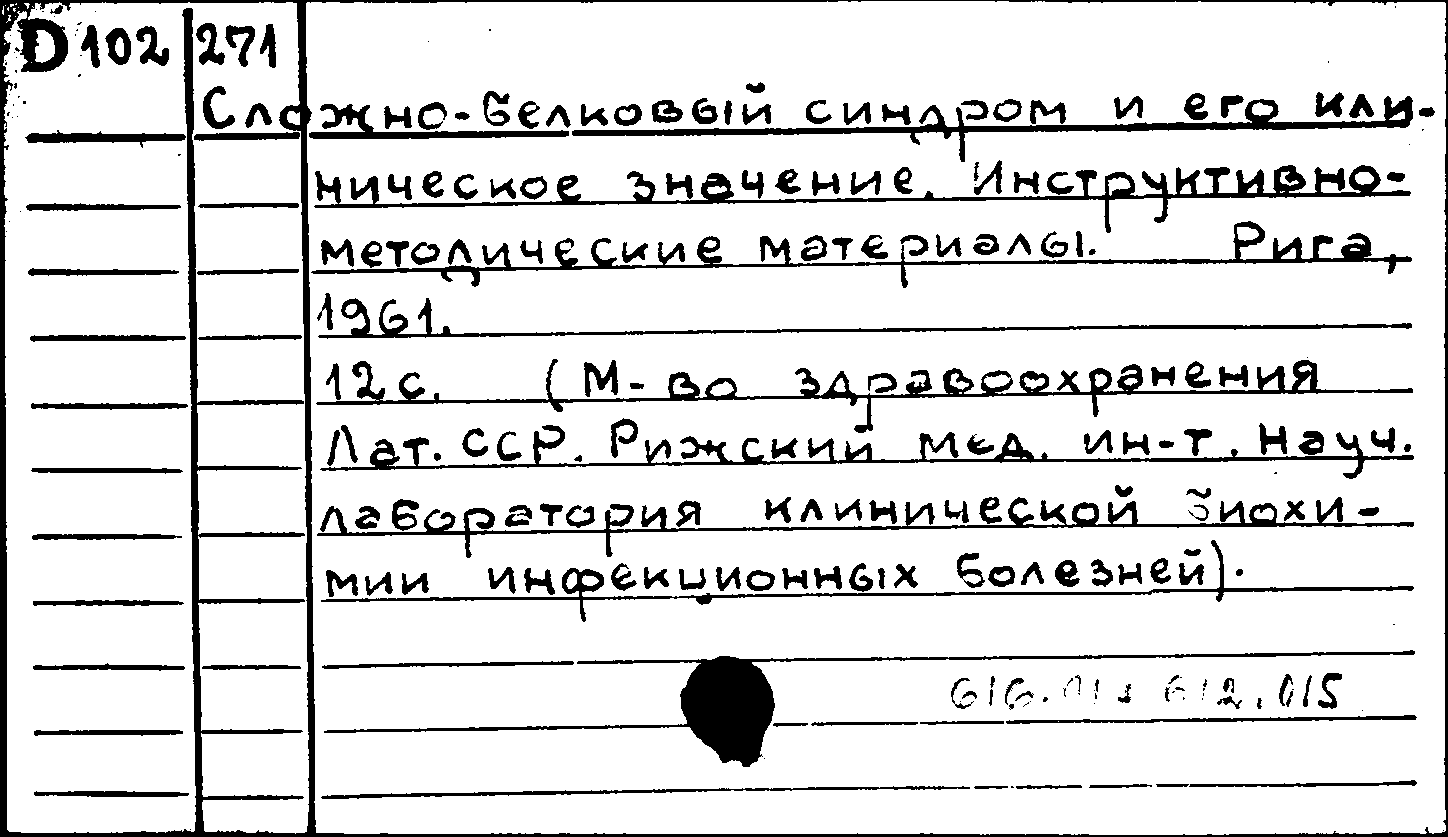 D 102 271
Сложно-белковый синдром и его кли-
ническое значение. Инструктивно-
методические материалы. Рига,
1961.
12 с. (М-во здравоохранения
Лат. ССР. Рижский мед. ин-т. Науч.
лаборатория клинической биохи-
мии инфекционных болезней).
612.015